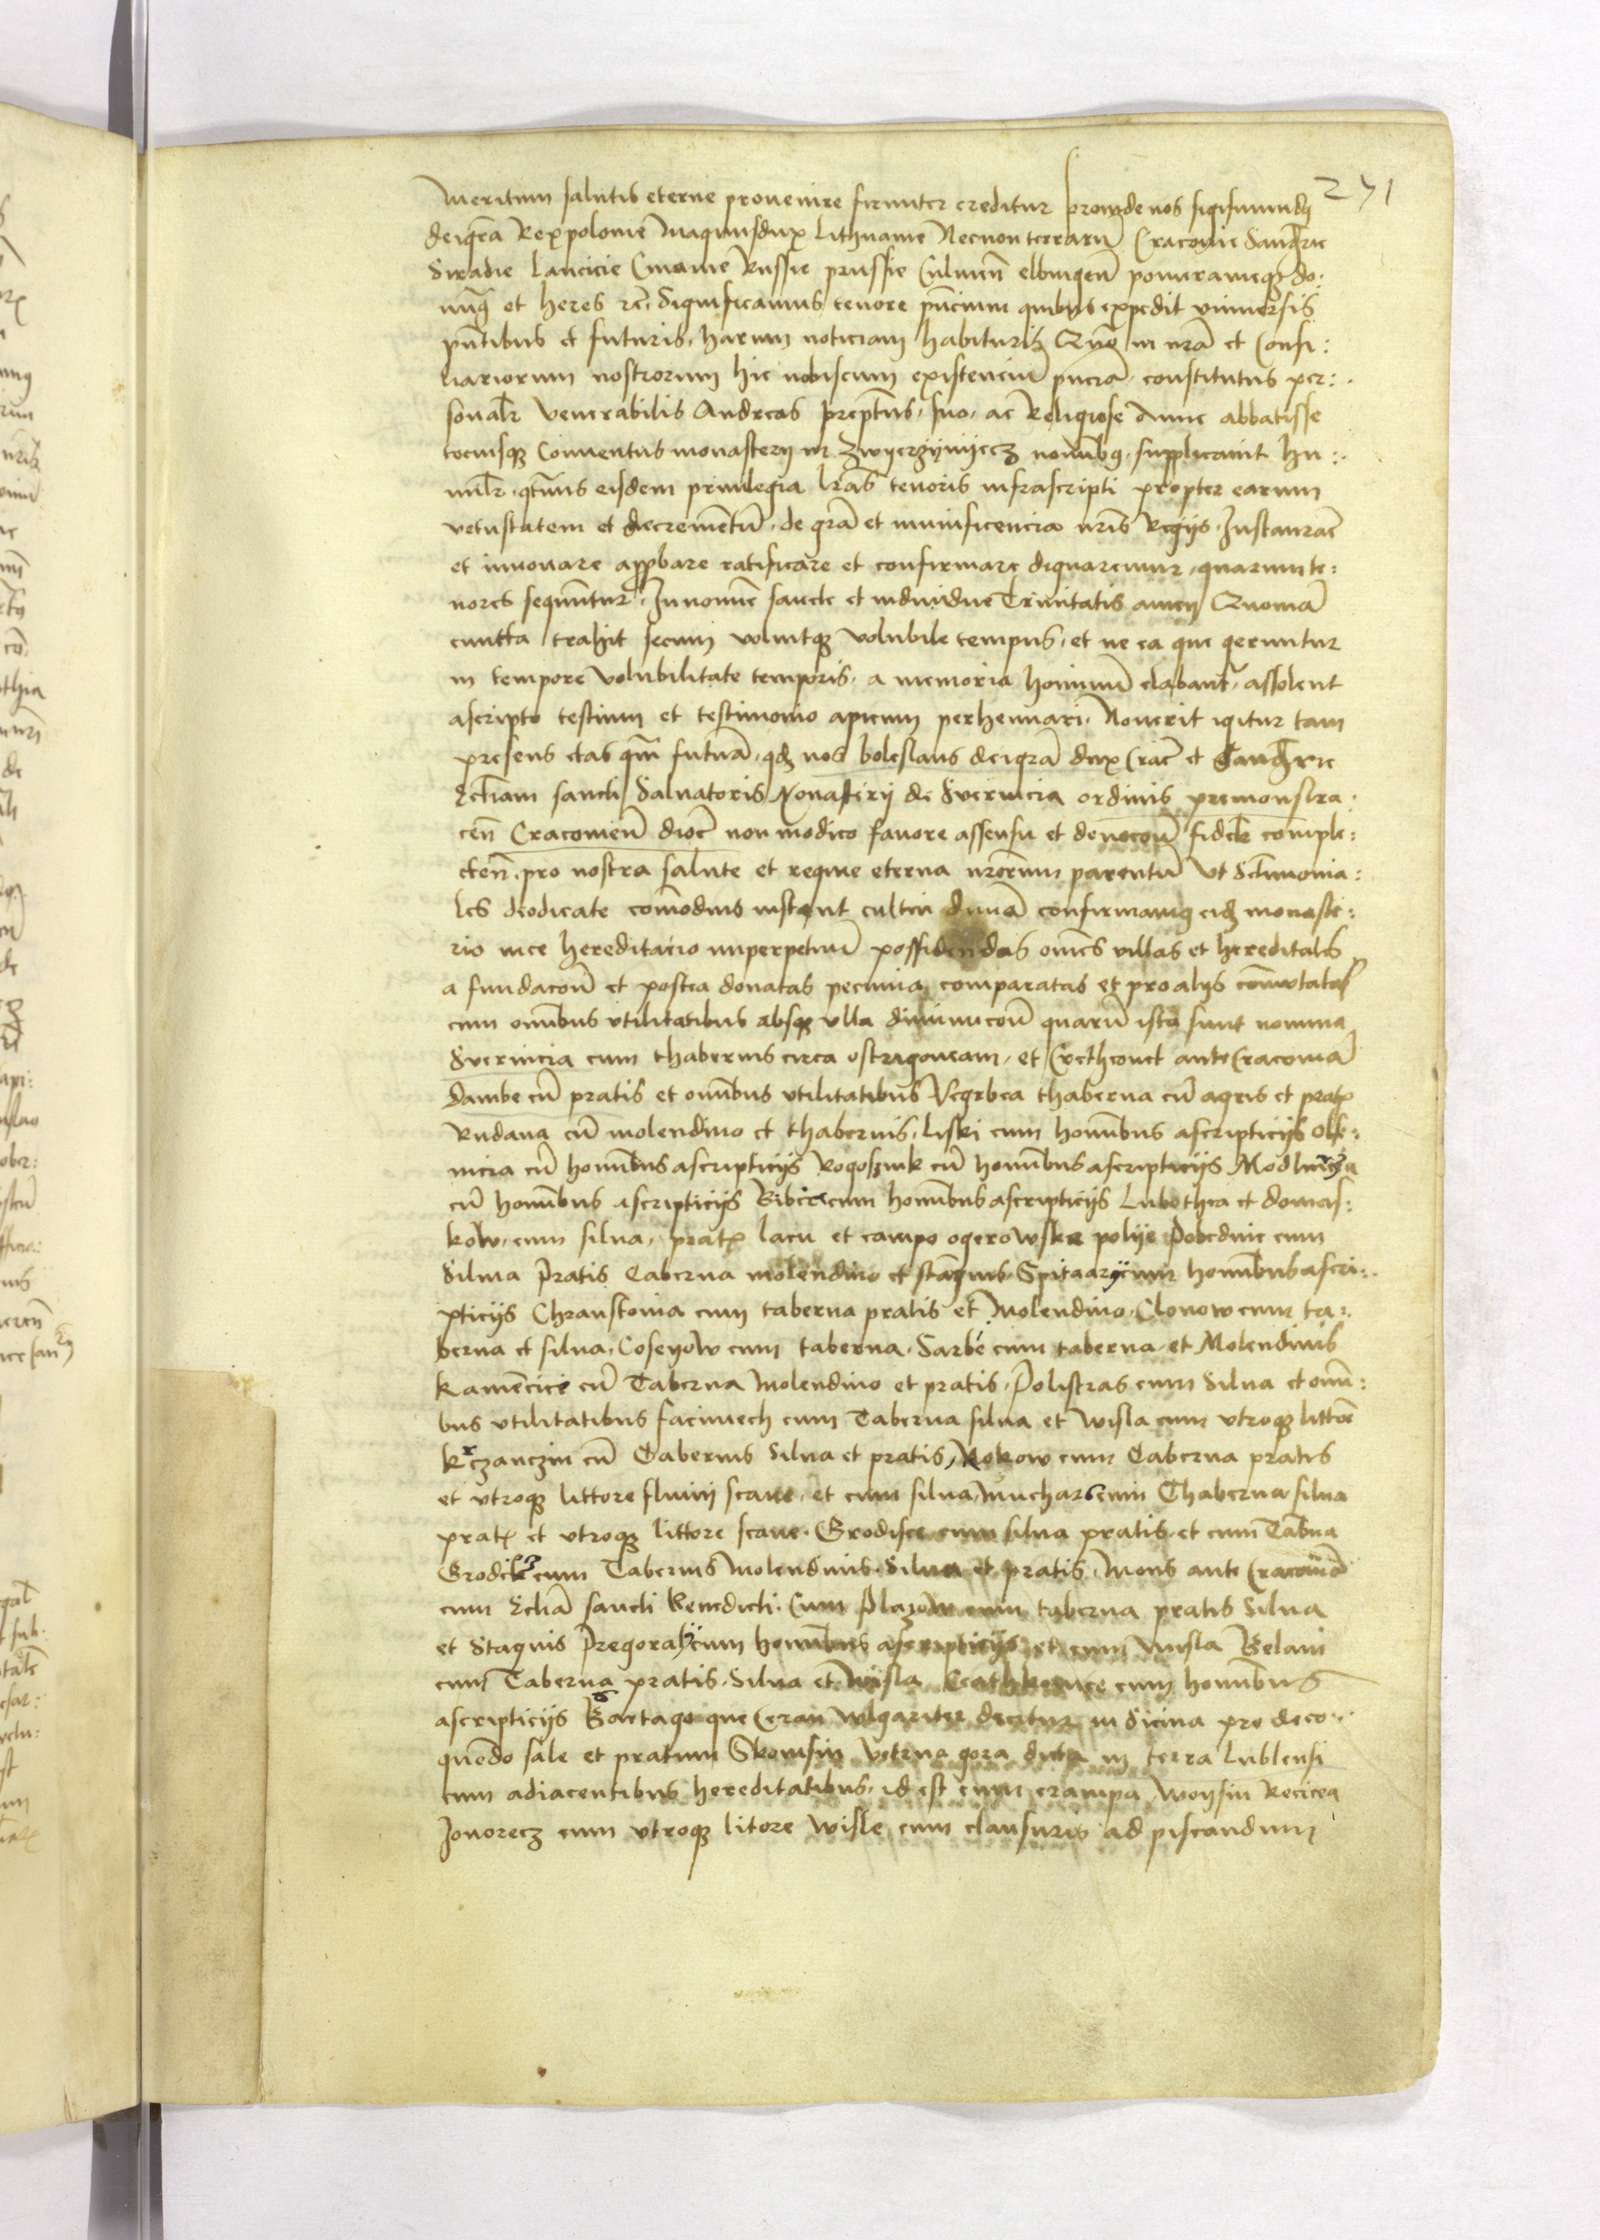 271
Meritum salutis eterne provenire firmiter creditur proinde nos sigismundus
deigra Rex polonie Magnusdux Lithuanie Necnon terrarum Cracovie Sandomirie
Siradie Lancicie Cuiavie Russie prussie Culmeñ elbingeñ pomeranieqz do:
minus et heres rc. Significamus tenore pñcium quibus expedit universis
pñtibus et futuris, harum noticiam habituris Quo in nrã et Consi:
liariorum nostrorum hic nobiscum existenciũ pñcia constitutus per:
sonalr Venerabilis Andreas preptus, suo, ac Religiose dñne abbatisse
tociusqz Conventus monasterij in Zwyerzynijecz nomibus, supplicavit hu:
milr. qtenus eisdem privilegia lras tenoris infrascripti propter earum
vetustatem et decrementũ, de grã et munificencia nris Regijs, Instaurare
et innovare appbare ratificare et confirmare dignaremur, quarum te:
nores sequuntur, Innomine sancte et individue Trinitatis amen Quoniã
cuncta trahit secum voluitqz volubile tempus, et ne ea que geruntur
in tempore volubilitate temporis, a memoria hominũ elabantr, assolent
ascripto testium et testimonio apicum perhennari, Noverit igitur tam
presens etas qm futura, qd nos boleslaus deigrã dux Crac et Sandomirie
Ecliam sancti Salvatoris Monasterij de Sverincia ordinis premonstra:
ceñ Cracovieñ dioc non modico favore assensu et devocõe fidelr comple:
cteñ, pro nostra salute et requie eterna nrorum parentũ Ut Sctimonia:
les deodicate comodius instent cultui divino confirmamus eidem monaste:
rio iure hereditario imperpetuũ possidendas omes villas et hereditates
a fundacoe et postea donatas pecunia comparatas et pro alijs comutatas
cum omibus utilitatibus absqz ulla diminucoe quarũ ista sunt nomina
Sverincia cum thabernis circa ostrigoneam, et Crethcouet ante Cracoviã
dambe cũ pratis et omibus utilitatibus Vegrbca thaberna cũ agris et pratis
Rudava cũ molendino et thabernis, Liski cum homibus ascripticijs Olse:
nicia cũ homibus ascripticijs Rogosznik cũ homibus ascripticijs Modlnicza
cũ homibus ascripticijs Bibice cum homibus ascripticijs Lubothca et domas:
kow, cum silva, pratis lacu et campo ogerowske polije Pobednic cum
Silva Pratis Taberna molendino et stagnis, Spitaarij cum homibus ascri:
pticijs Chranstovia cum taberna pratis et Molendino, Clonow cum ta:
berna et silva, Coseyow cum taberna, Sarbe cum taberna et Molendinis
Kamencice cũ Taberna Molendino et pratis, Polistras cum Silva et omi:
bus utilitatibus facimech cum Taberna silva et Wisla cum utroqz littore
Krczanczin cũ Tabernis Silva et pratis, Rokow cum Taberna pratis
et utroqz littore fluvij scave, et cum silva, Mucharz cum Thaberna silva
pratis et utroqz littore scave. Grodisce cum silva pratis et cum Tabna
Grodek cum Tabernis Molendinis, Silva et pratis, Mons ante Cracoviã
cum Ecliã sancti Benedicti, Cum Plazow cum taberna pratis Silva
et Stagnis Pregoraly cum homibus ascripticijs et cum Wisla Belani
cum Taberna pratis, Silva et Wisla Ceathkovice cum homibus
ascripticijs Bartago que Ceran vulgariter dicitur in Sicina pro deco:
quendo sale et pratum Skomsin vetrna gora dicta in terra Lublensi
cum adiacentibus hereditatibus, id est cum crampa Woysin Recicea
Jonorecz cum utroqz litore Wisle cum clausuris ad piscandum